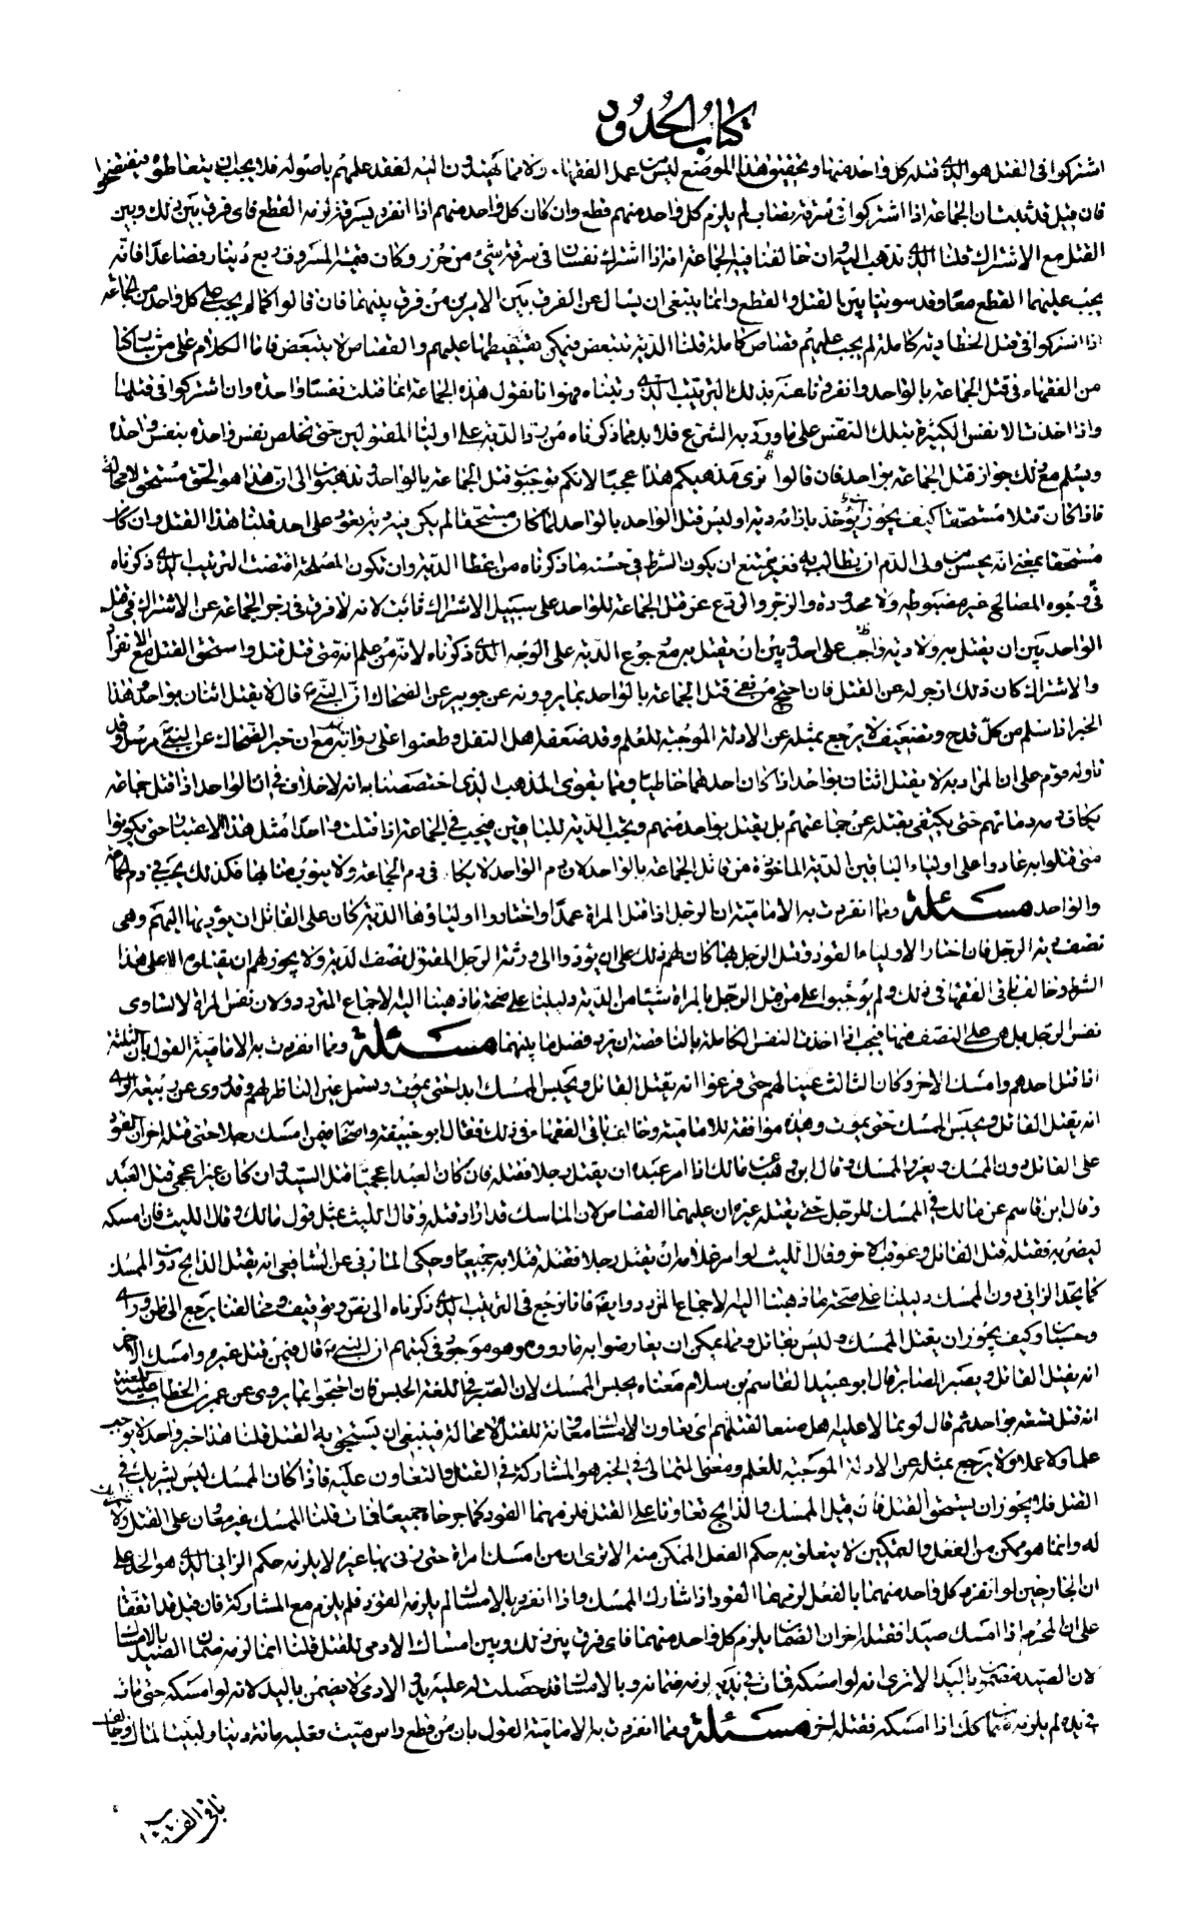 كتاب الحدود
اشتركوا في القتل هو الذي قتله كل واحد منهما وتحقيق هذا الموضع ليس من عمل الفقهاء ولا مما يهتدون اليه لفقد علمهم باصوله فلا يجب ان يتعاطوه فيفتضحوا
فان قيل قد ثبت ان الجماعة اذا اشتركوا في سرقة نصاب لم يلزم كل واحد منهم قطع وان كان كل واحد منهم اذا انفرد بسرقته لزمه القطع فاى فرق بين ذلك وبين
القتل مع الاشتراك قلنا الذي نذهب اليه وان خالفنا فيه الجماعة انه اذا اشترك نفسان في سرقة شيء من حرز وكان قيمة المسروق ربع دينار فصاعدا فانه
يجب عليهما القطع معا وقد سوينا بين القتل والقطع وانما ينبغي ان يسال عن الفرق بين الامرين من فرق بينهما فان قالوا كما لم يجب على كل واحد من الجماعة
اذا اشتركوا في قتل الخطا دية كاملة لم يجب عليهم قصاص كامل قلنا الدية تتبعض فيمكن تقسيطها عليهم والقصاص لا يتبعض فاما الكلام على من شاركنا
من الفقهاء في قتل الجماعة بالواحد وانفردنا عنه بذلك الترتيب الذي رتبناه فهو انا نقول هذه الجماعة انما قتلت نفسا واحدة وان اشتركوا في قتلها
واذا اخذت الانفس الكثيرة بتلك النفس على ما ورد به الشرع فلا بد مما ذكرناه من رد الدية على اولياء المقتولين حتى تخلص نفس واحدة بنفس واحدة
ويسلم مع ذلك جواز قتل الجماعة بواحد فان قالوا نرى مذهبكم هذا عجبا لانكم توجبون قتل الجماعة بالواحد وتذهبون الى ان هذا هو الحق مستحق لا محالة
فاذا كان قتلا مستحقا كيف يجوز ان يؤخذ بازائه دية او ليس قتل الواحد بالواحد لما كان مستحقا لم يكن فيه دية تعود على احد قلنا هذا القتل وان كان
مستحقا بمعنى انه يحسن من ولى الدم ان يطالب به فغير ممتنع ان يكون الشرط في حسنه ما ذكرناه من اعطا الدية وان تكون المصلحة اقتضت الترتيب الذي ذكرناه
في وجوه المصالح غير مضبوطة ولا محدودة والزجر والردع عن قتل الجماعة للواحد على سبيل الاشتراك ثابت لانه لا فرق في زجر الجماعة عن الاشتراك في قتل
الواحد بين ان يقتل به ولا دية واجب على احد وبين ان يقتل به مع رجوع الدية على الوجه الذي ذكرناه لانه من علم انه متى قتل قتل واستحق القتل مع الانفراد
والاشتراك كان ذلك ازجر له عن القتل فان احتج من نفى قتل الجماعة بالواحد بما يروونه عن جويبر عن الضحاك ان النبي قال لا يقتل اثنان بواحد وهذا
الخبر اذا سلم من كل قدح وتضعيف لا يرجع بمثله عن الادلة الموجبة للعلم وقد ضعفه اهل النقل وطعنوا على رواته مع ان خبر الضحاك عن النبي مرسل وقد
تاوله قوم على ان المراد به لا يقتل اثنان بواحد اذا كان احدهما خاطيا ومما يقوى المذهب الذي اختصصنا به انه لا خلاف في ان الواحد اذا قتل جماعة
لم يكاف دمه دماءهم حتى يكتفى بقتله عن جماعتهم بل يقتل بواحد منهم وتجب الدية للباقين فيجب في الجماعة اذا قتلت واحدا مثل هذا الاعتبار حتى يكونوا
متى قتلوا به عادوا على اولياء الباقين الدية الماخوذة من قاتل الجماعة بالواحد لان دم الواحد لا يكافى دم الجماعة ولا ينوب منابها فكذلك يجب في دم الجماعة
والواحد مسئلة ومما انفردت به الامامية ان الرجل اذا قتل المراة عمدا واختاروا اولياؤها الدية كان على القاتل ان يؤديها اليهم وهي
نصف دية الرجل فان اختار الاولياء القود وقتل الرجل بها كان لهم ذلك على ان يؤدوا الى ورثة الرجل المقتول نصف الدية ولا يجوز لهم ان يقتلوه الا على هذا
الشرط وخالف باقي الفقهاء في ذلك ولم يوجبوا على من قتل الرجل بالمراة شيئا من الدية دليلنا على صحة ما ذهبنا اليه الاجماع المتردد ولان نفس المراة لا تساوى
نفس الرجل بل هي على النصف منها فيجب اذا اخذت النفس الكاملة بالناقصة ان يرد فضل ما بينهما مسئلة ومما انفردت به الامامية القول بان الثلثة
اذا قتل احدهم وامسك الاخر وكان الثالث عينا لهم حتى فرغوا انه يقتل القاتل ويحبس الممسك ابدا حتى يموت وتسمل عين الناظر لهم وقد روى عن ربيعة الراى
انه يقتل القاتل ويحبس الممسك حتى يموت وهذه موافقة للامامية وخالف باقي الفقهاء في ذلك فقال ابو حنيفة واصحابه فيمن امسك رجلا حتى قتله اخر ان القود
على القاتل دون الممسك ويعزر الممسك وقال ابن وهب عن مالك اذا امر عبده ان يقتل رجلا فقتله فان كان العبد اعجميا قتل السيد وان كان غير اعجمي قتل العبد
وقال ابن قاسم عن مالك في الممسك للرجل حتى يقتله غيره ان عليهما القصاص لان الماسك قد اراد قتله وقال الليث بمثل قول مالك وقال الليث فان امسكه
ليضربه فقتله قتل القاتل وعوقب الاخر وقال الليث لو امر غلامه ان يقتل رجلا فقتله قتلا به جميعا وحكى المازني عن الشافعي انه يقتل الذابح دون الممسك
كما يحد الزاني دون الممسك دليلنا على صحة ما ذهبنا اليه الاجماع المتردد وايضا فانا نرجع في الترتيب الذي ذكرناه الى نص وتوقيف ومخالفنا يرجع الى ظن وراى
وحسبان وكيف يجوز ان يقتل الممسك وليس بقاتل ومما يمكن ان يعارضوا به ما رووه وهو موجود في كتبهم ان النبي قال فيمن قتل غيره وامسك الاخر
انه يقتل القاتل ويصبر الصابر قال ابو عبيد القاسم بن سلام معناه يحبس الممسك لان الصبر في اللغة الحبس فان احتجوا بما يروى عن عمر بن الخطاب
انه قتل سبعة بواحد ثم قال لو تمالا عليه اهل صنعا لقتلهم اى تعاون والامساك معاونة للقتل لا محالة فينبغي ان يستحق به القتل قلنا هذا خبر واحد لا يوجب
علما ولا عملا ولا يرجع بمثله عن الادلة الموجبة للعلم ومعنى التمالى في الخبر هو المشاركة في القتل والتعاون عليه فاذا كان الممسك ليس بشريك في
القتل فلا يجوز ان يستحق القتل فان قيل الممسك والذابح تعاونا على القتل فلزمهما القود كما لو جرحاه جميعا فمات قلنا الممسك غير معاون على القتل ولا شريك
له وانما هو ممكن من الفعل والتمكين لا يتعلق به حكم الفعل الممكن منه الا ترى ان من امسك امراة حتى زنى بها غيره لا يلزمه حكم الزاني الذي هو الحد على
ان الجارحين لو انفرد كل واحد منهما بالفعل لزمهما القود اذا شارك الممسك واذا انفرد بالامساك لم يلزمه القود فلم يلزم مع المشاركة فان قيل قد اتفقنا
على ان المحرم اذا امسك صيدا فقتله اخر ان الضمان يلزم كل واحد منهما فاى فرق بين ذلك وبين امساك الادمى للقتل قلنا انما لزمه ضمان الصيد بالامساك
لان الصيد مضمون باليد الا ترى انه لو امسكه فمات في يده لزمه ضمانه وبالامساك قد حصلت له عليه يد والادمى لا يضمن باليد لانه لو امسكه حتى مات
في يده لم يلزمه ضمان كذلك اذا امسكه فقتله اخر مسئلة ومما انفردت به الامامية القول بان من قطع راس ميت فعليه مائة دينار لبيت المال وخالف
باقي الفقهاء